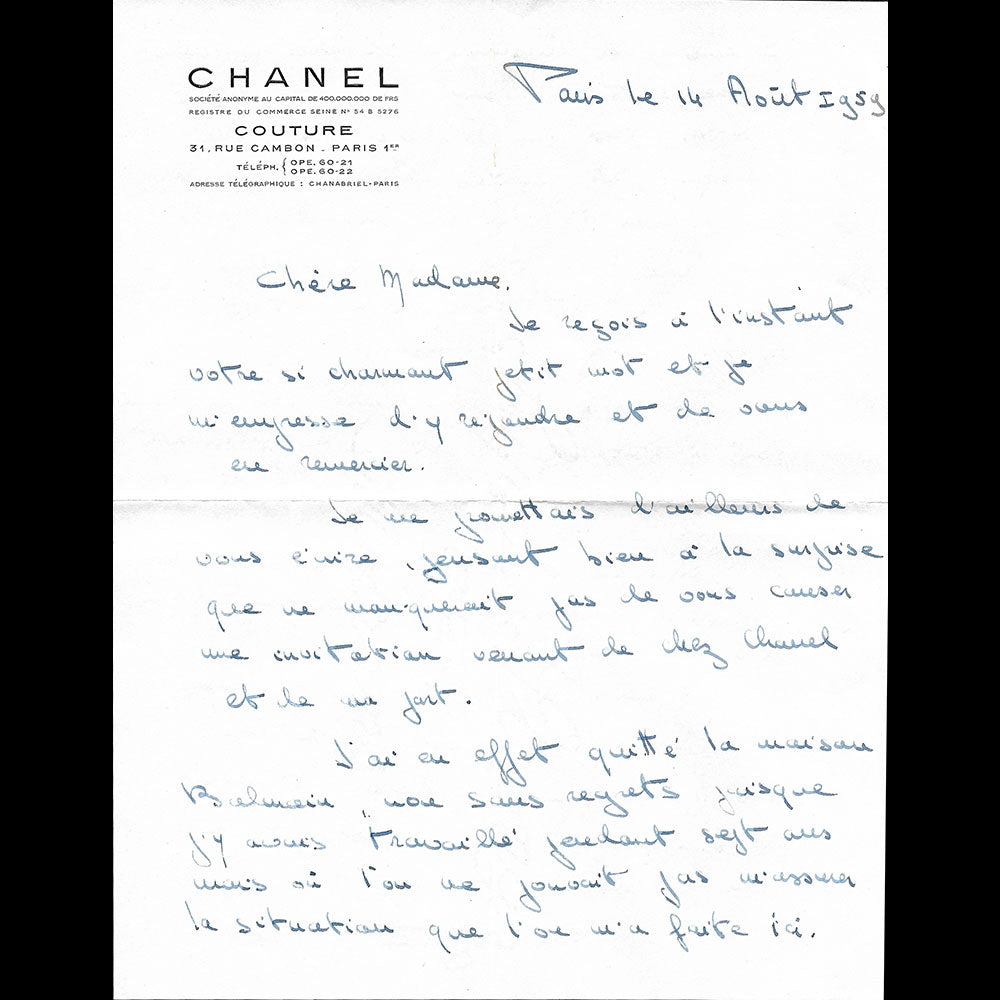 CHANEL
SOCIÉTÉ ANONYME AU CAPITAL DE 400.000.000 DE FRS
REGISTRE DU COMMERCE SEINE Nº 54 B 5276
COUTURE
31, RUE CAMBON - PARIS 1ER
TÉLÉPH. { OPE. 60-21
OPE. 60-22
ADRESSE TÉLÉGRAPHIQUE : CHANABRIEL-PARIS
Paris le 14 Août 1959
Chère Madame,
Je reçois à l'instant
votre si charmant petit mot et je
m'empresse d'y répondre et de vous
en remercier.
Je me promettais d'ailleurs de
vous écrire, pensant bien à la surprise
que ne manquerait pas de vous causer
une invitation venant de chez Chanel
et de ma part.
J'ai en effet quitté la maison
Balmain, non sans regrets puisque
j'y avais travaillé pendant sept ans
mais où l'on ne pouvait pas m'assurer
la situation que l'on m'a faite ici.